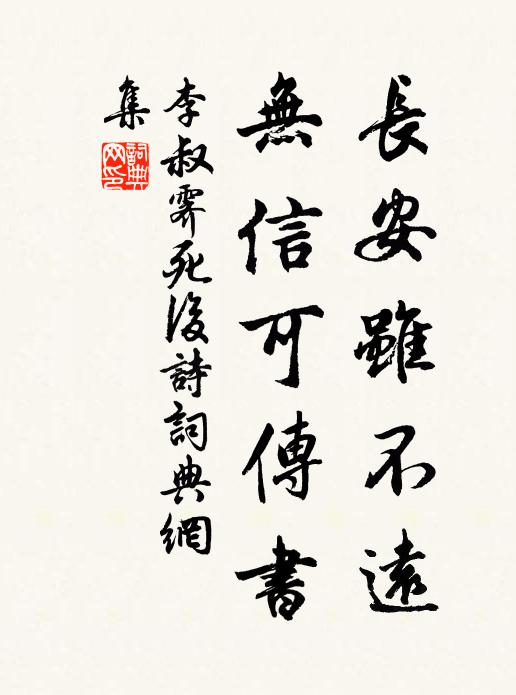 長安雖不遠
無信可傳書
李叔霽死後詩詞典網
集
詞典
网印